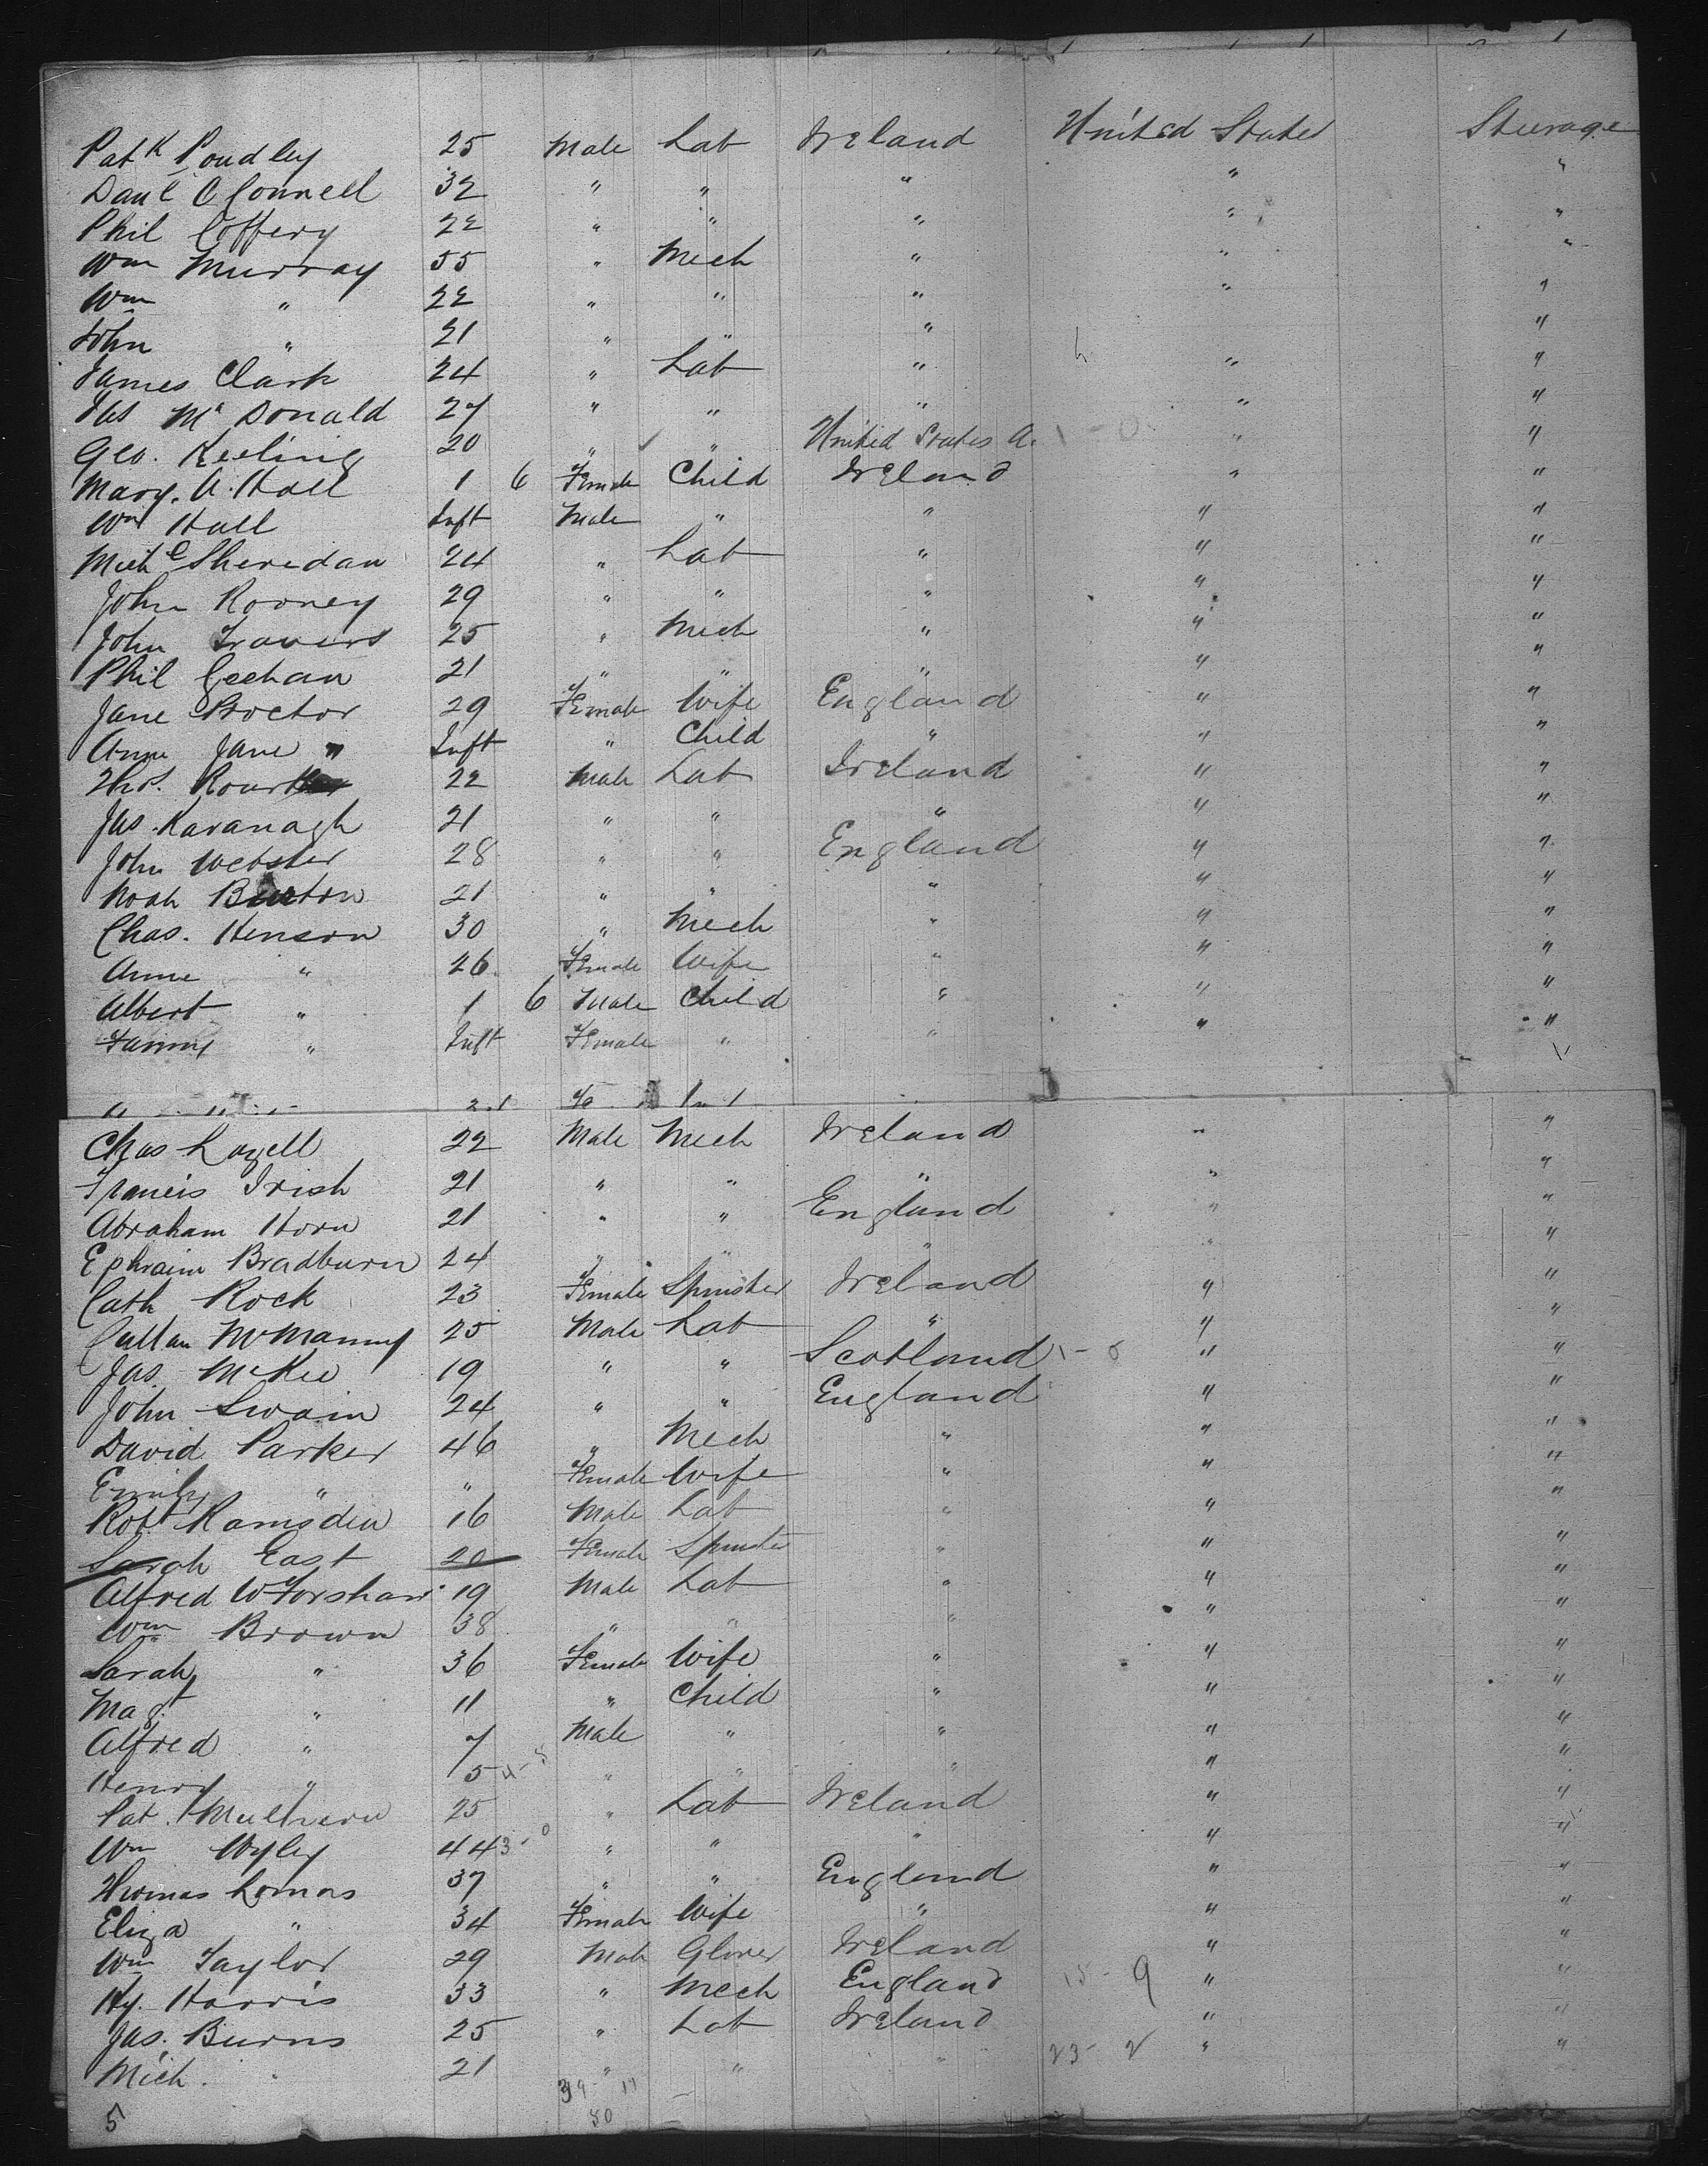 Patk Poudley 25 Male Lab Ireland United States Steerage
Danl O Connell 32 " " " " "
Phil Coffery 22 " " " " "
Wm Murray 55 " Mech " " "
Wm " 22 " " " " "
John " 21 " " " "
James Clark 24 " Lab " " "
Jas McDonald 27 " " " " "
Geo. Keeling 20 " " United States A. " "
Mary A. Hall 1 6 Female Child Ireland " "
Wm Hall Inft Male " " " "
Michl Sheridan 24 " Lab " " "
John Rooney 29 " " " " "
John Travers 25 " Mech " " "
Phil Geehan 21 " " " " "
Jane Proctor 29 Female Wife England " "
Anne Jane " Inft " Child " " "
Thos. Rourke 22 Male Lab Ireland " "
Jas. Kavanagh 21 " " " " "
John Webster 28 " " England " "
Noah Burton 21 " " " " "
Chas. Henson 30 " Mech " " "
Anne " 26 Female Wife " " "
Albert " 1 6 Male Child " " "
Fanny " Inft Female " " " "
Chas Lazell 22 Male Mech Ireland " "
Francis Irish 21 " " " " "
Abraham Horn 21 " " England " "
Ephraim Bradburn 24 " " " " "
Cath Rock 23 Female Spinster Ireland " "
McManny 25 Male Lab " " "
Jas. McKee 19 " " Scotland " "
John Swain 24 " " England " "
David Parker 46 " Mech " " "
Emily " " Female Wife " " "
Robt Ramsden 16 Male Lab " " "
Sarah East 20 Female Spinster " " "
Alfred W Forshaw 19 Male Lab " " "
Wm Brown 38 " " " " "
Sarah " 36 Female Wife " " "
Magt " 11 " Child " " "
Alfred " 7 Male " " " "
Henry " 5 " " " " "
Pat. Mulhern 25 " Lab Ireland " "
Wm Wyley 44 " " " " "
Thomas Lomas 37 " " England " "
Eliza " 34 Female Wife " " "
Wm Taylor 29 Male Glover Ireland " "
Hy. Harris 33 " Mech England 15 - 9 " "
Jas. Burns 25 " Lab Ireland " "
Mich. " 21 " " " 23 - 2 " "
5 50